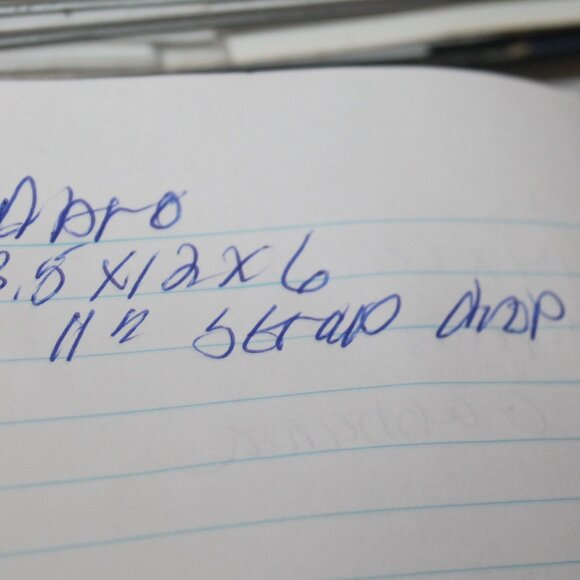 Apro
8.5 x 12 x 6
11" strap drop